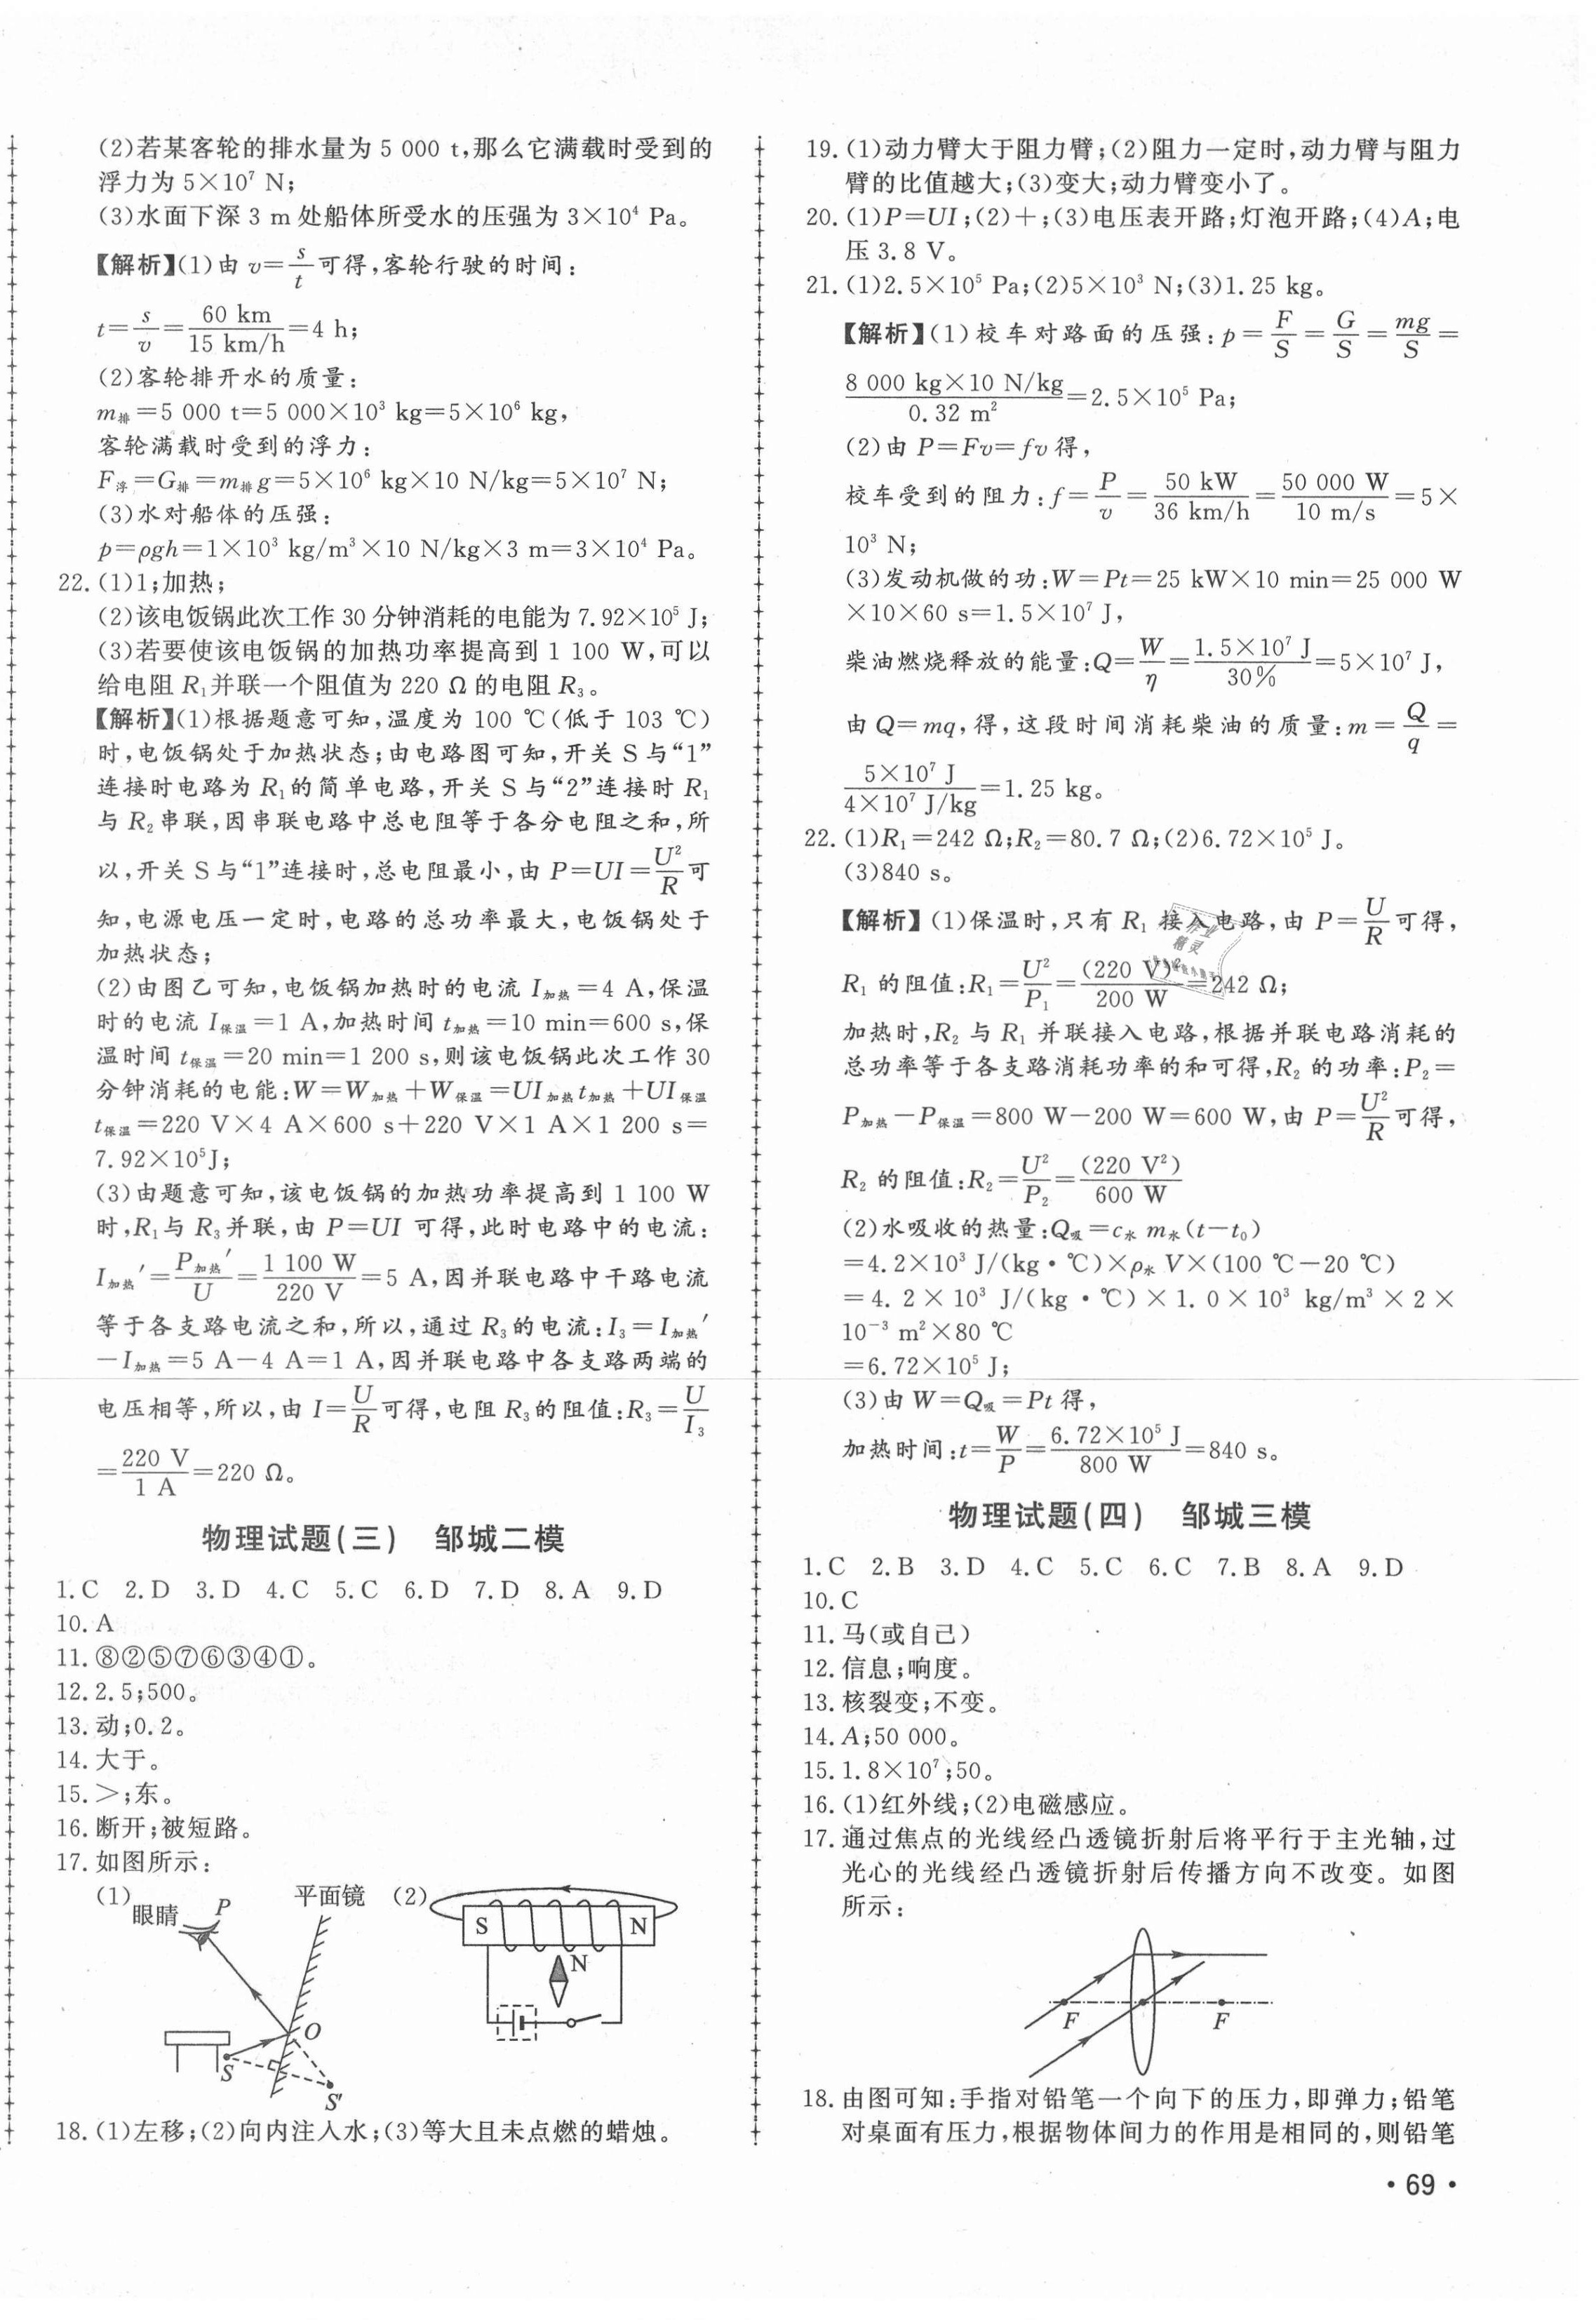 (2)若某客轮的排水量为 5 000 t,那么它满载时受到的
浮力为 5×10⁷ N;
(3)水面下深 3 m 处船体所受水的压强为 3×10⁴ Pa。
【解析】(1)由 v=s/t可得,客轮行驶的时间:
t=s/v=60 km/15 km/h=4 h;
(2)客轮排开水的质量:
m排=5 000 t=5 000×10³ kg=5×10⁶ kg,
客轮满载时受到的浮力:
F浮=G排=m排g=5×10⁶ kg×10 N/kg=5×10⁷ N;
(3)水对船体的压强:
p=ρgh=1×10³ kg/m³×10 N/kg×3 m=3×10⁴ Pa。
22.(1)1;加热;
(2)该电饭锅此次工作 30 分钟消耗的电能为 7.92×10⁵ J;
(3)若要使该电饭锅的加热功率提高到 1 100 W,可以
给电阻 R₁并联一个阻值为 220 Ω 的电阻 R₃。
【解析】(1)根据题意可知,温度为 100 ℃(低于 103 ℃)
时,电饭锅处于加热状态;由电路图可知,开关 S 与“1”
连接时电路为 R₁的简单电路,开关 S 与“2”连接时 R₁
与 R₂串联,因串联电路中总电阻等于各分电阻之和,所
以,开关 S 与“1”连接时,总电阻最小,由 P=UI=U²/R可
知,电源电压一定时,电路的总功率最大,电饭锅处于
加热状态;
(2)由图乙可知,电饭锅加热时的电流 I加热=4 A,保温
时的电流 I保温=1 A,加热时间 t加热=10 min=600 s,保
温时间 t保温=20 min=1 200 s,则该电饭锅此次工作 30
分钟消耗的电能:W=W加热+W保温=UI加热t加热+UI保温
t保温=220 V×4 A×600 s+220 V×1 A×1 200 s=
7.92×10⁵J;
(3)由题意可知,该电饭锅的加热功率提高到 1 100 W
时,R₁与 R₃并联,由 P=UI 可得,此时电路中的电流:
I加热′=P加热′/U=1 100 W/220 V=5 A,因并联电路中干路电流
等于各支路电流之和,所以,通过 R₃的电流:I₃=I加热′
-I加热=5 A-4 A=1 A,因并联电路中各支路两端的
电压相等,所以,由 I=U/R可得,电阻 R₃的阻值:R₃=U/I₃
=220 V/1 A=220 Ω。
物理试题(三) 邹城二模
1.C 2.D 3.D 4.C 5.C 6.D 7.D 8.A 9.D
10.A
11.⑧②⑤⑦⑥③④①。
12.2.5;500。
13.动;0.2。
14.大于。
15.>;东。
16.断开;被短路。
17.如图所示:
(1) 眼睛 P 平面镜 O S S′
(2) S N N
18.(1)左移;(2)向内注入水;(3)等大且未点燃的蜡烛。
19.(1)动力臂大于阻力臂;(2)阻力一定时,动力臂与阻力
臂的比值越大;(3)变大;动力臂变小了。
20.(1)P=UI;(2)+;(3)电压表开路;灯泡开路;(4)A;电
压 3.8 V。
21.(1)2.5×10⁵ Pa;(2)5×10³ N;(3)1.25 kg。
【解析】(1)校车对路面的压强:p=F/S=G/S=mg/S=
8 000 kg×10 N/kg/0.32 m²=2.5×10⁵ Pa;
(2)由 P=Fv=fv 得,
校车受到的阻力:f=P/v=50 kW/36 km/h=50 000 W/10 m/s=5×
10³ N;
(3)发动机做的功:W=Pt=25 kW×10 min=25 000 W
×10×60 s=1.5×10⁷ J,
柴油燃烧释放的能量:Q=W/η=1.5×10⁷ J/30%=5×10⁷ J,
由 Q=mq,得,这段时间消耗柴油的质量:m=Q/q=
5×10⁷ J/4×10⁷ J/kg=1.25 kg。
22.(1)R₁=242 Ω;R₂=80.7 Ω;(2)6.72×10⁵ J。
(3)840 s。
【解析】(1)保温时,只有 R₁ 接入电路,由 P=U/R可得,
R₁ 的阻值:R₁=U²/P₁=(220 V)²/200 W=242 Ω;
加热时,R₂ 与 R₁ 并联接入电路,根据并联电路消耗的
总功率等于各支路消耗功率的和可得,R₂ 的功率:P₂=
P加热-P保温=800 W-200 W=600 W,由 P=U²/R可得,
R₂ 的阻值:R₂=U²/P₂=(220 V²)/600 W
(2)水吸收的热量:Q吸=c水 m水(t-t₀)
=4.2×10³ J/(kg·℃)×ρ水 V×(100 ℃-20 ℃)
=4.2×10³ J/(kg·℃)×1.0×10³ kg/m³×2×
10⁻³ m²×80 ℃
=6.72×10⁵ J;
(3)由 W=Q吸=Pt 得,
加热时间:t=W/P=6.72×10⁵ J/800 W=840 s。
物理试题(四) 邹城三模
1.C 2.B 3.D 4.C 5.C 6.C 7.B 8.A 9.D
10.C
11.马(或自己)
12.信息;响度。
13.核裂变;不变。
14.A;50 000。
15.1.8×10⁷;50。
16.(1)红外线;(2)电磁感应。
17.通过焦点的光线经凸透镜折射后将平行于主光轴,过
光心的光线经凸透镜折射后传播方向不改变。如图
所示:
F F
18.由图可知:手指对铅笔一个向下的压力,即弹力;铅笔
对桌面有压力,根据物体间力的作用是相同的,则铅笔
·69·